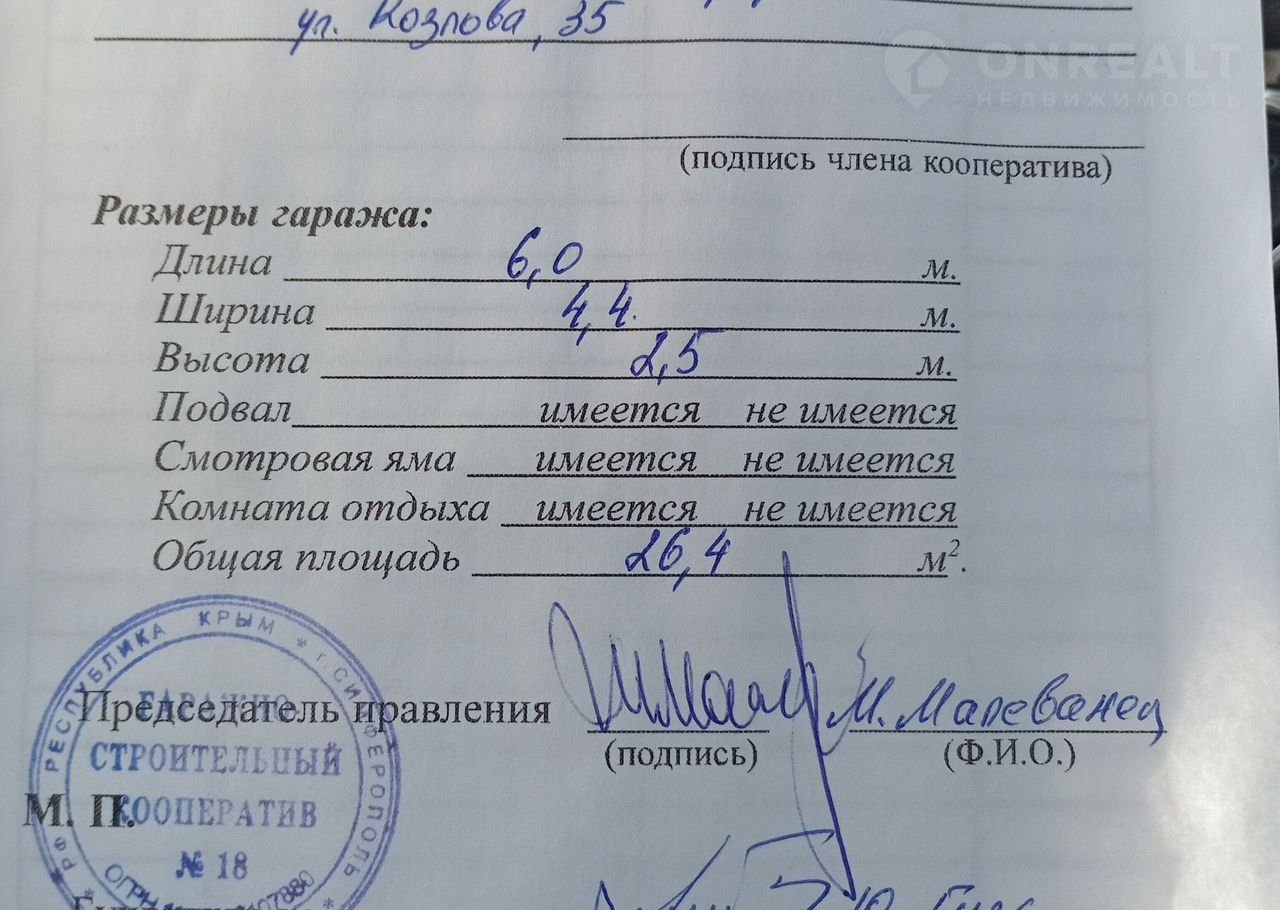 ул. Козлова, 35
ONREALT
НЕДВИЖИМОСТЬ
(подпись члена кооператива)
Размеры гаража:
Длина 6,0 м.
Ширина 4,4 м.
Высота 2,5 м.
Подвал имеется не имеется
Смотровая яма имеется не имеется
Комната отдыха имеется не имеется
Общая площадь 26,4 м².
Председатель правления М. Малеванец
(подпись) (Ф.И.О.)
М. П.
РФ * РЕСПУБЛИКА КРЫМ * г. СИМФЕРОПОЛЬ *
ГАРАЖНО-
СТРОИТЕЛЬНЫЙ
КООПЕРАТИВ
№ 18
ОГРН